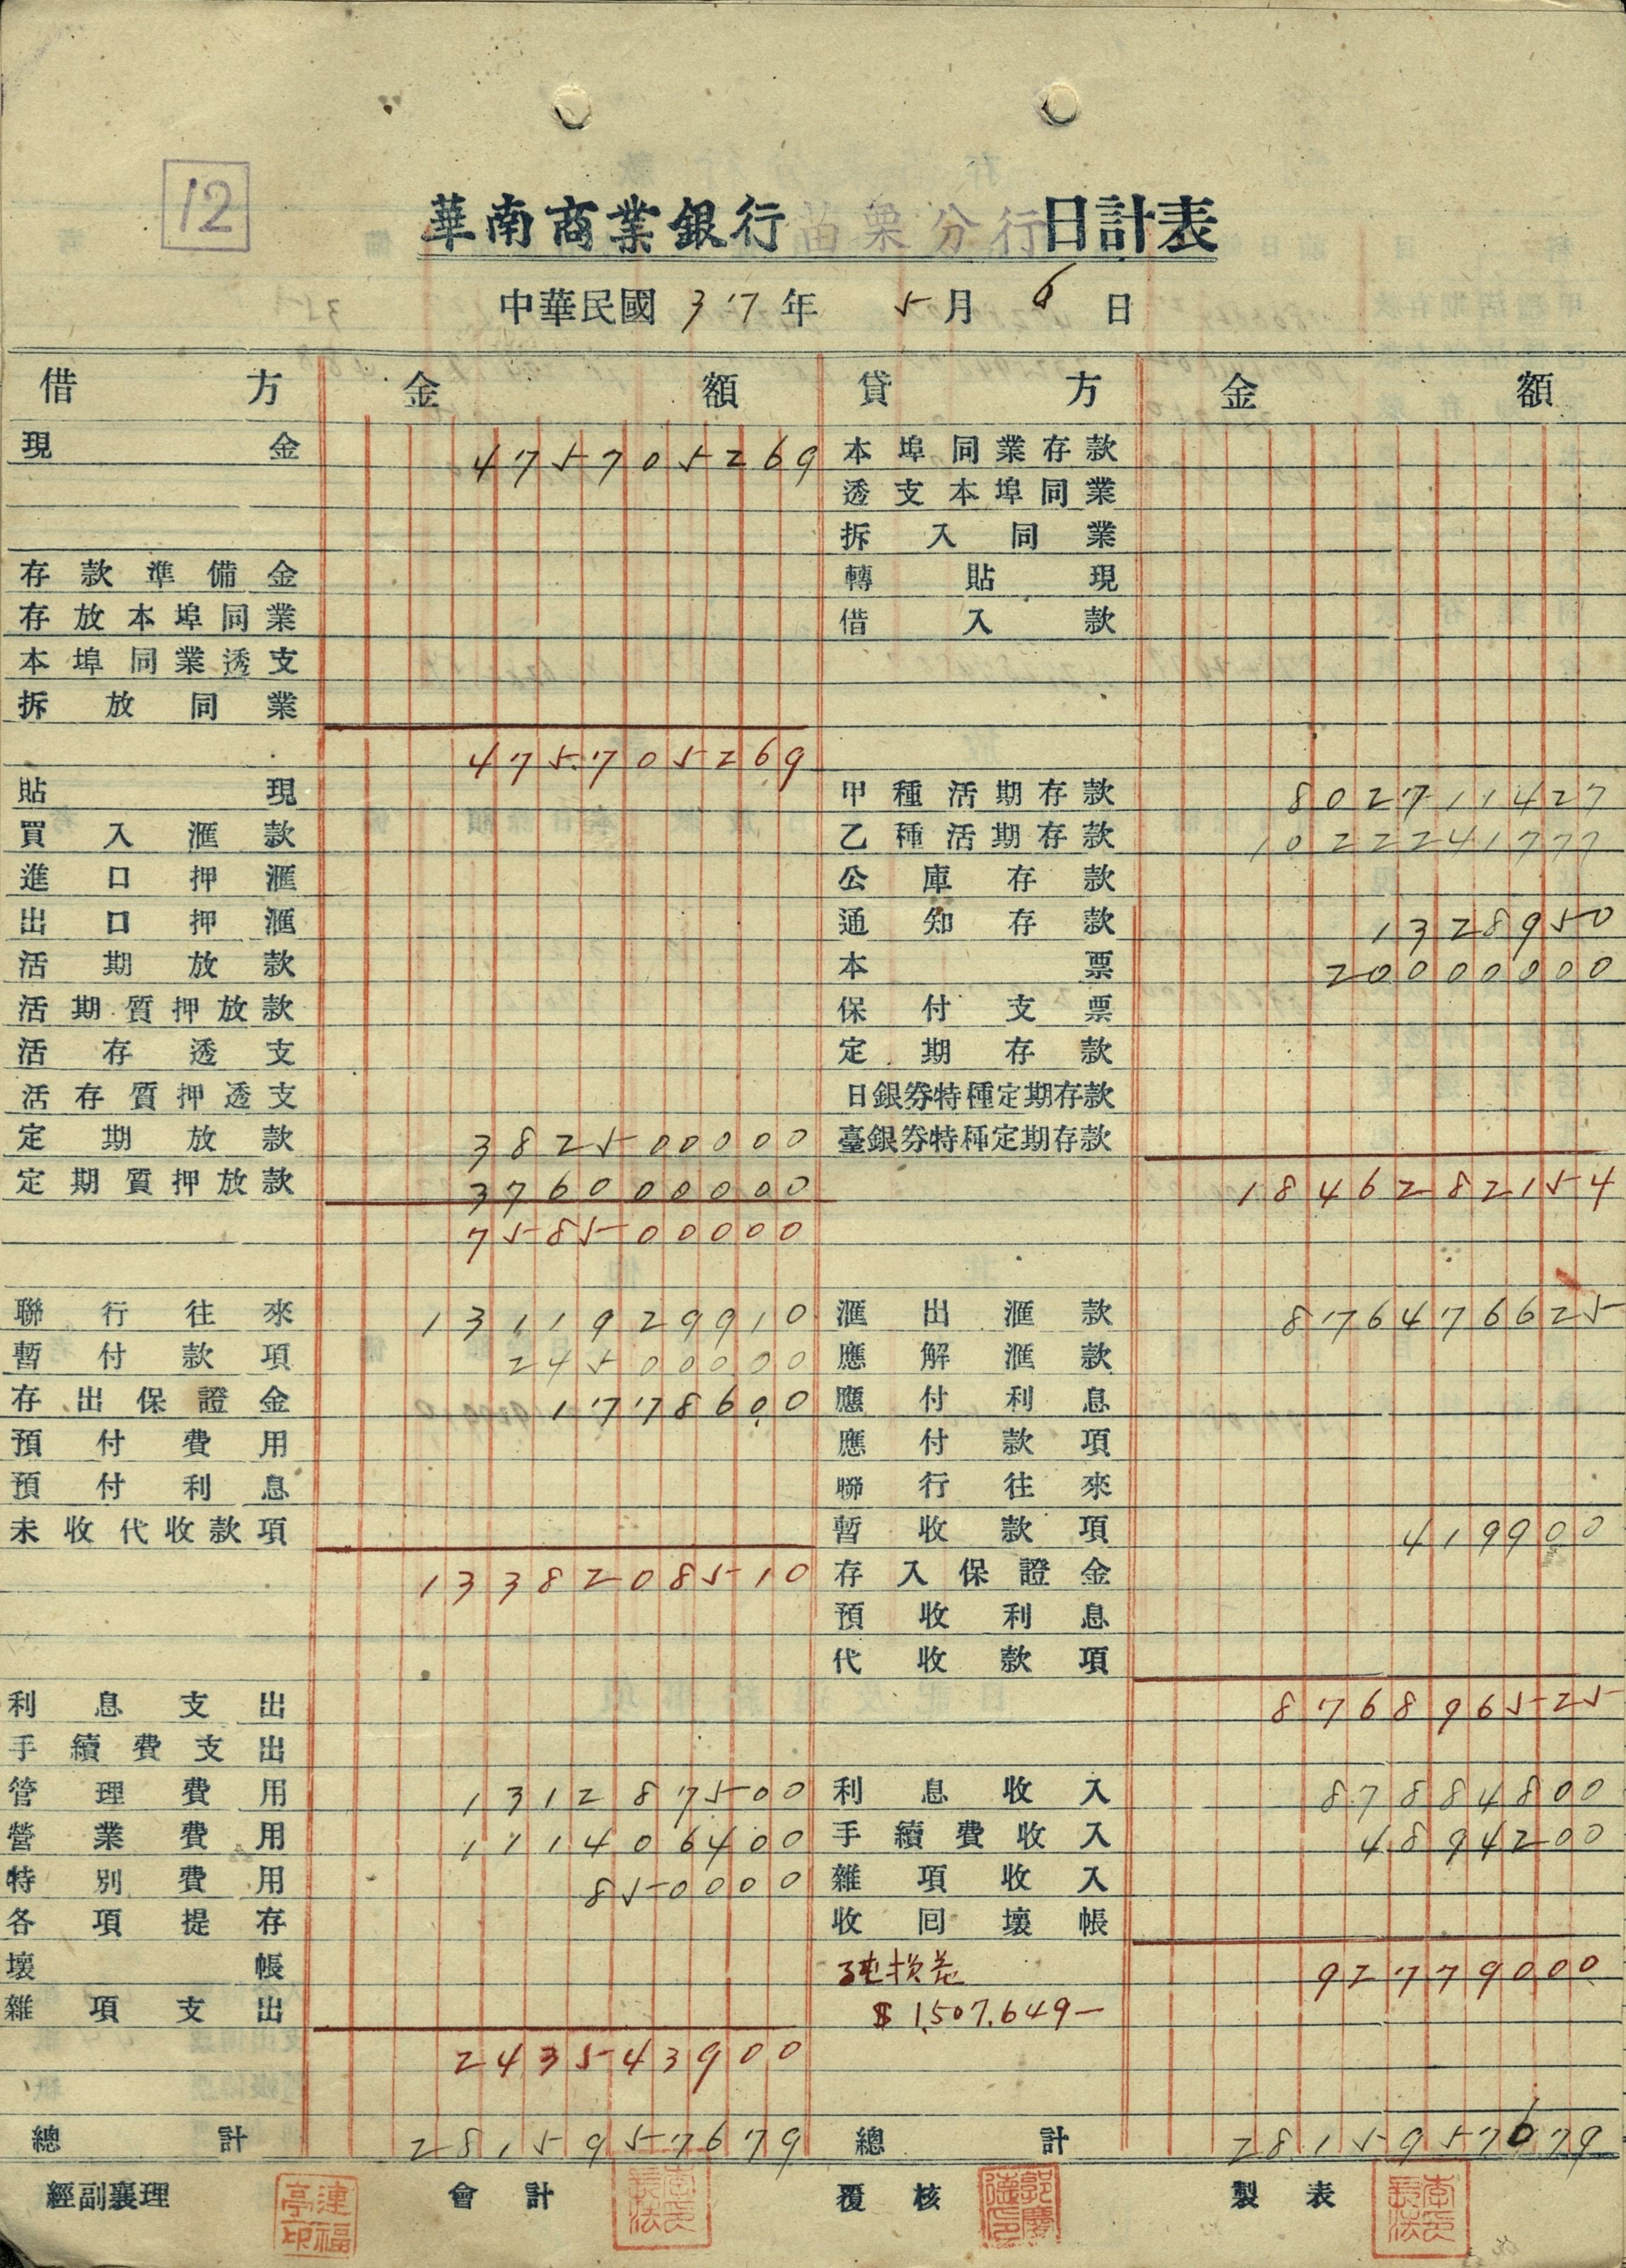 12
華南商業銀行苗栗分行日計表
中華民國 37 年 5 月 6 日
借方 金額 貸方 金額
現金 475705269 本埠同業存款
透支本埠同業
拆入同業
存款準備金 轉貼現
存放本埠同業 借入款
本埠同業透支
拆放同業
475705269
貼現 甲種活期存款 802711427
買入滙款 乙種活期存款 1022241777
進口押滙 公庫存款
出口押滙 通知存款 1328950
活期放款 本票 20000000
活期質押放款 保付支票
活存透支 定期存款
活存質押透支 日銀券特種定期存款
定期放款 382500000 臺銀券特種定期存款
定期質押放款 376000000 1846282154
758500000
聯行往來 1311929910 滙出滙款 876476625
暫付款項 24500000 應解滙款
存出保證金 1778600 應付利息
預付費用 應付款項
預付利息 聯行往來
未收代收款項 暫收款項 419900
1338208510 存入保證金
預收利息
代收款項
利息支出 876896525
手續費支出
管理費用 131287500 利息收入 87884800
營業費用 111406400 手續費收入 4894200
特別費用 850000 雜項收入
各項提存 收回壞帳
壞帳 純損益 92779000
雜項支出 $1,507,649—
243543900
總計 2815957679 總計 2815957679
經副襄理 會計 覆核 製表
連福亭印